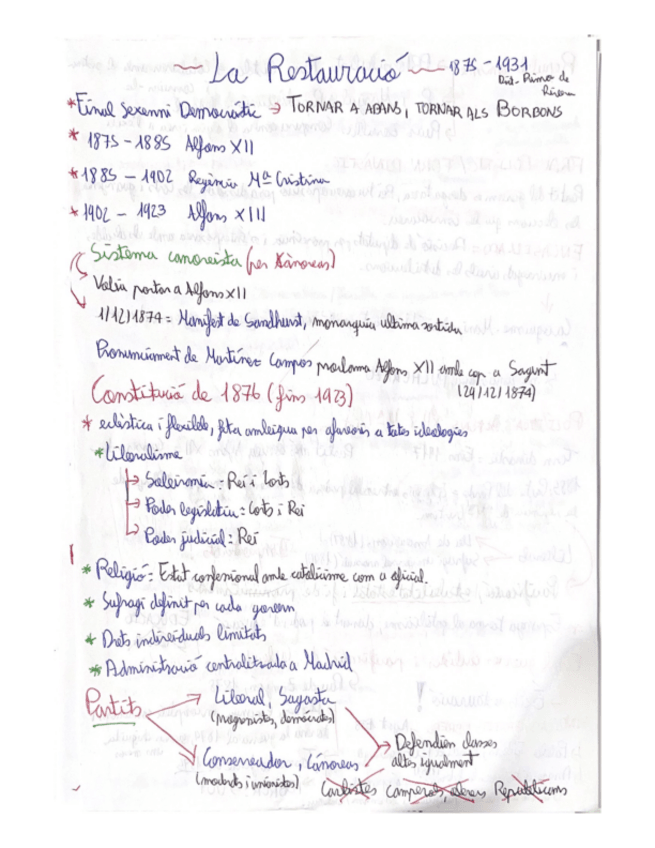 La Restauració 1875 - 1931
Dict. Primo de
Rivera
*Final Sexenni Democràtic → TORNAR A ABANS, TORNAR ALS BORBONS
* 1875-1885 Alfons XII
* 1885 - 1902 Regència Mª Cristina
* 1902 - 1923 Alfons XIII
Sistema canovista (per Cánovas)
Volia portar a Alfons XII
1/12/1874 = Manifest de Sandhurst, monarquia ultima sortida
Pronunciament de Martínez Campos proclama Alfons XII amb cop a Sagunt
(29/12/1874)
Constitució de 1876 (fins 1923)
* eclèctica i flexible, feta ambigua per afavorir a totes ideologies
*Liberalisme
→ Sobirania: Rei i Corts
→ Poder legislatiu: Corts i Rei
→ Poder judicial: Rei
* Religió: Estat confesional amb catolicisme com a oficial.
* Sufragi definit per cada govern
* Drets individuals limitats
* Administració centralitzada a Madrid
Partits → Liberal, Sagasta
(progresistes, demòcrates)
→ Conservador, Cánovas
(moderats i unionistes)
→ Defendien classes
altes igualment
Carlistes Camperols, obrers Republicans